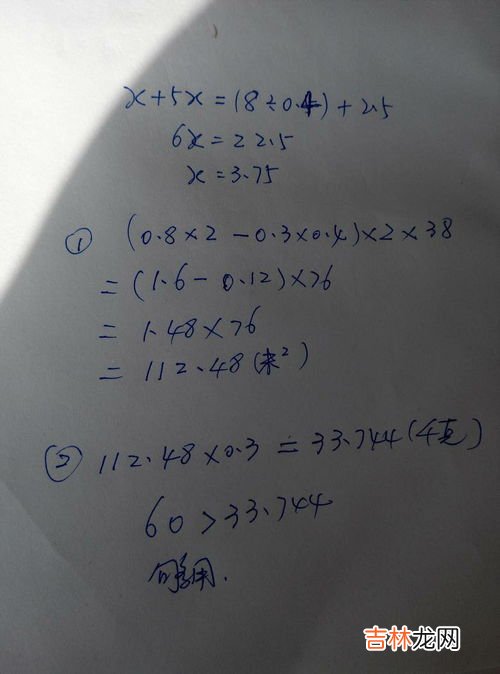 x+5x=(8÷0.4)+2.5
6x=22.5
x=3.75
① (0.8×2-0.3×0.4)×2×38
=(1.6-0.12)×76
=1.48×76
=112.48(米²)
② 112.48×0.3=33.744(千克)
60>33.744
够用.
吉林龙网